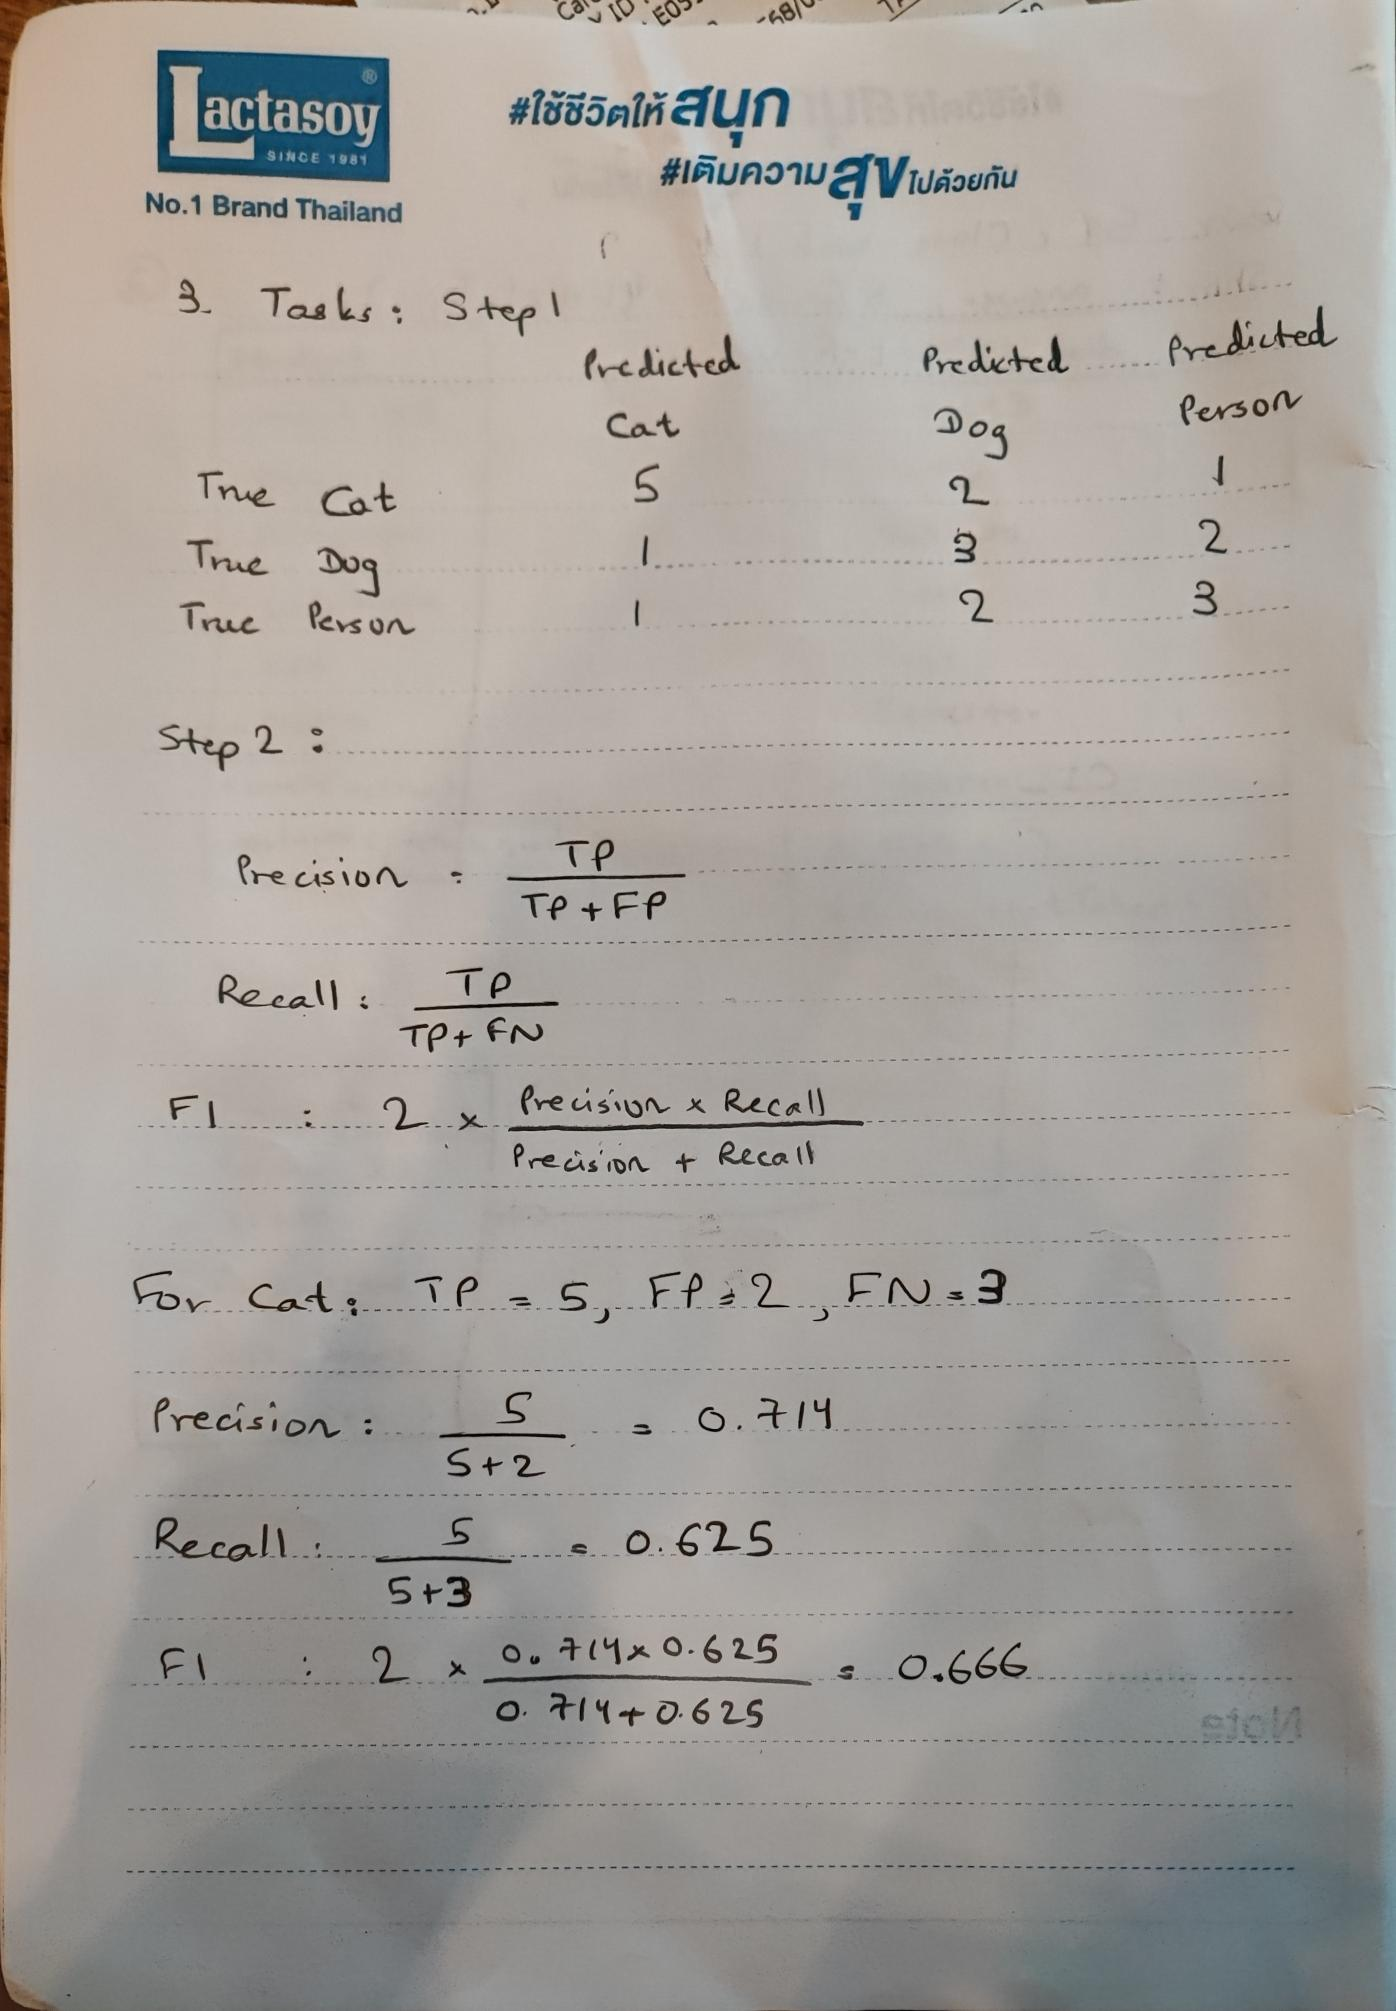 Lactasoy ®
SINCE 1981
No.1 Brand Thailand
#ใช้ชีวิตให้สนุก
#เติมความสุขไปด้วยกัน
3. Tasks: Step 1
Predicted Predicted Predicted
Cat Dog Person
True Cat 5 2 1
True Dog 1 3 2
True Person 1 2 3
Step 2 :
Precision = TP
TP + FP
Recall : TP
TP + FN
F1 : 2 x Precision x Recall
Precision + Recall
For Cat: TP = 5, FP = 2, FN = 3
Precision : 5 = 0.714
5+2
Recall : 5 = 0.625
5+3
F1 : 2 x 0.714 x 0.625 = 0.666
0.714 + 0.625
Note